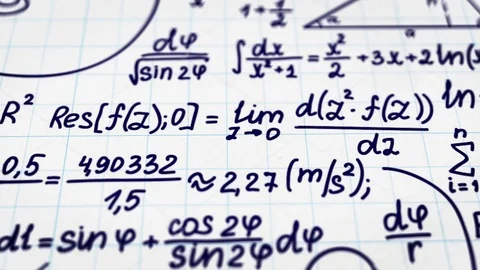 1+1/2
a
dφ/√sin2φ ∫dx/(x²+1) = x²/2 +3x+2ln(x
a
R² Res[f(z);0] = lim z→0 d(z²·f(z))/dz ln
0,5/ = 490332/1,5 ≈ 2,27 (m/s²); n Σ i=1
dl = sin φ + cos2φ/sin2φ dφ dφ/r